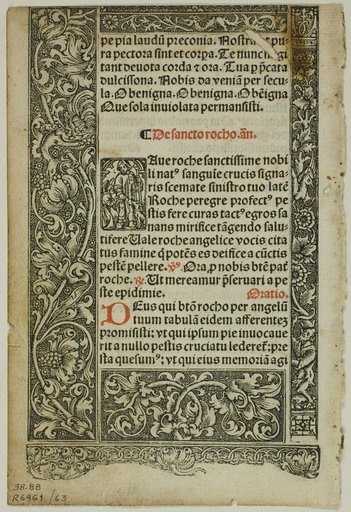 pe pia laudū preconia. Nostra vt pu
ra pectora sint et corpa. Te nunc flagi
tant deuota corda ⁊ ora. Tua p̄cata
dulcissona. Nobis da veniā per secu
la. O benigna. O benigna. O bēigna
Que sola inuiolata permansisti.
¶ De sancto rocho. añ.
Aue roche sanctissime nobi
li nat⁹ sanguīe crucis signa
ris scemate sinistro tuo latē
Roche peregre profect⁹ pe
stis fere curas tact⁹ egros sa
nans mirifice tāgendo salu
tifere Uale roche angelice vocis cita
tus famine q̇ potēs es deifice a cūctis
pestē pellere. ℣. Ora, p nobis btē pať
roche. ℟. Ut mereamur p̄seruari a pe
ste epidimie. Oratio.
DEus qui btō rocho per angelū
tuum tabulā eidem afferentez
promisisti: vt qui ipsum pie inuocaue
rit a nullo pestis cruciatu lederet: pre
sta quesum⁹: vt qui eius memoriā agi
38.88
R6461/63